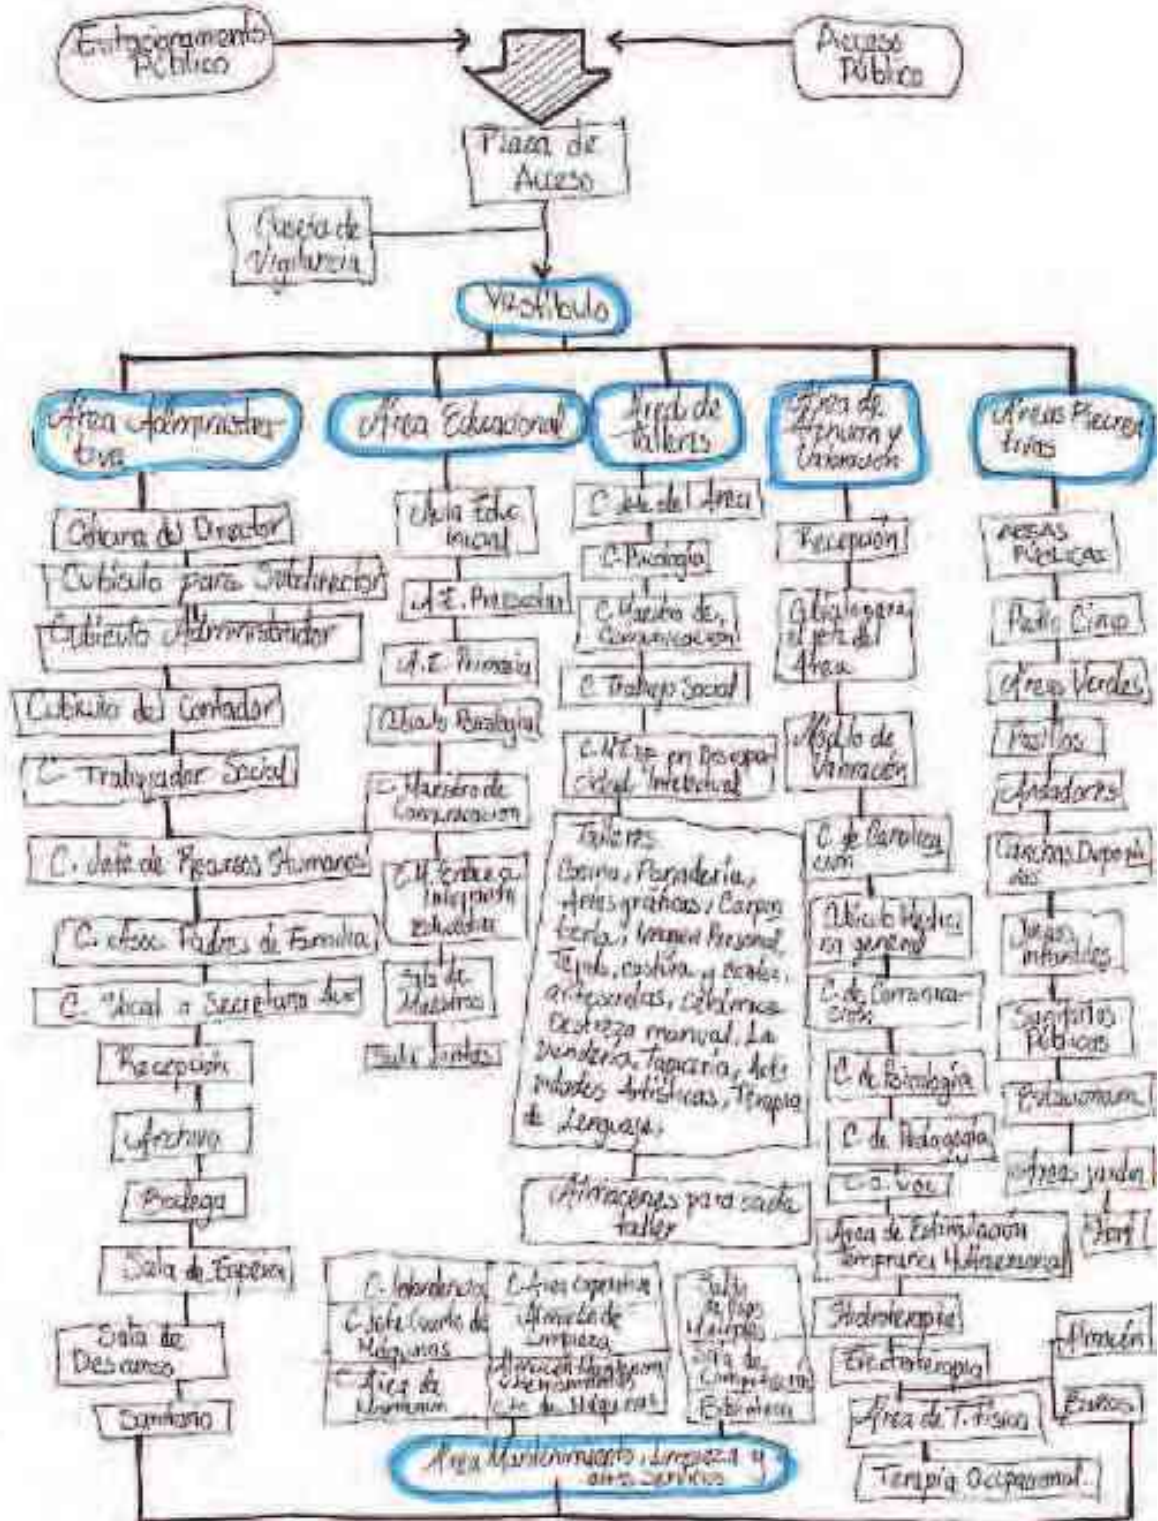 Estacionamento
Público
Acceso
Público
Plaza de
Acceso
Caseta de
Vigilancia
Vestíbulo
Área Administra-
tiva
Oficina del Director
Cubículo para Subdirector
Cubículo Administrador
Cubículo del Contador
C. Trabajador Social
C. Jefe de Recursos Humanos
C. Asoc. Padres de Familia
C. Vocal o Secretario Aux
Recepción
Archivo
Bodega
Sala de Espera
Sala de
Descanso
Sanitario
Área Educacional
Aula Educ.
inicial
A.E. Preescolar
A.E. Primaria
Cubículo Psicología
C. Maestro de
Comunicación
Sala de
Maestros
Sala Juntas
Área de
Talleres
C. Jefe del Área
C. Psicología
C. Maestro de
Comunicación
C. Trabajo Social
en Discapa
cidad Intelectual
Talleres
Cocina, Panadería,
Artes gráficas, Carpin
tería, Imagen Personal,
Tejido, costura y
artesanías, cerámica
Destreza manual, La
vandería, Tapicería, Acti
vidades Artísticas, Terapia
de Lenguaje.
Almacenes para cada
taller
Área de
Atención y
Valoración
Recepción
Cubículo para
el jefe del
Área
Módulo de
Valoración
C. de Canaliza
ción
Cubículo Médic
en general
C. de Comunica-
ción
C. de Psicología
C. de Pedagogía
Área de Estimulación
Temprana Multisensorial
Hidroterapia
Electroterapia
Área de T. Física
Terapia Ocupacional
Almacén
Baños
Áreas Recrea
tivas
PÚBLICAS
Patio Cívico
Áreas Verdes
Pasillos
Andadores
Canchas Deporti
vas
Juegos
infantiles
Sanitarios
Públicos
Estacionam
Áreas jardín
C. Intendencia
C. Jefe Cuarto de
Máquinas
C. Área de
Limpieza
Cto de Máquinas
Usos
Múltiples
Sala de
Biblioteca
Área Mantenimiento, Limpieza y
otros servicios